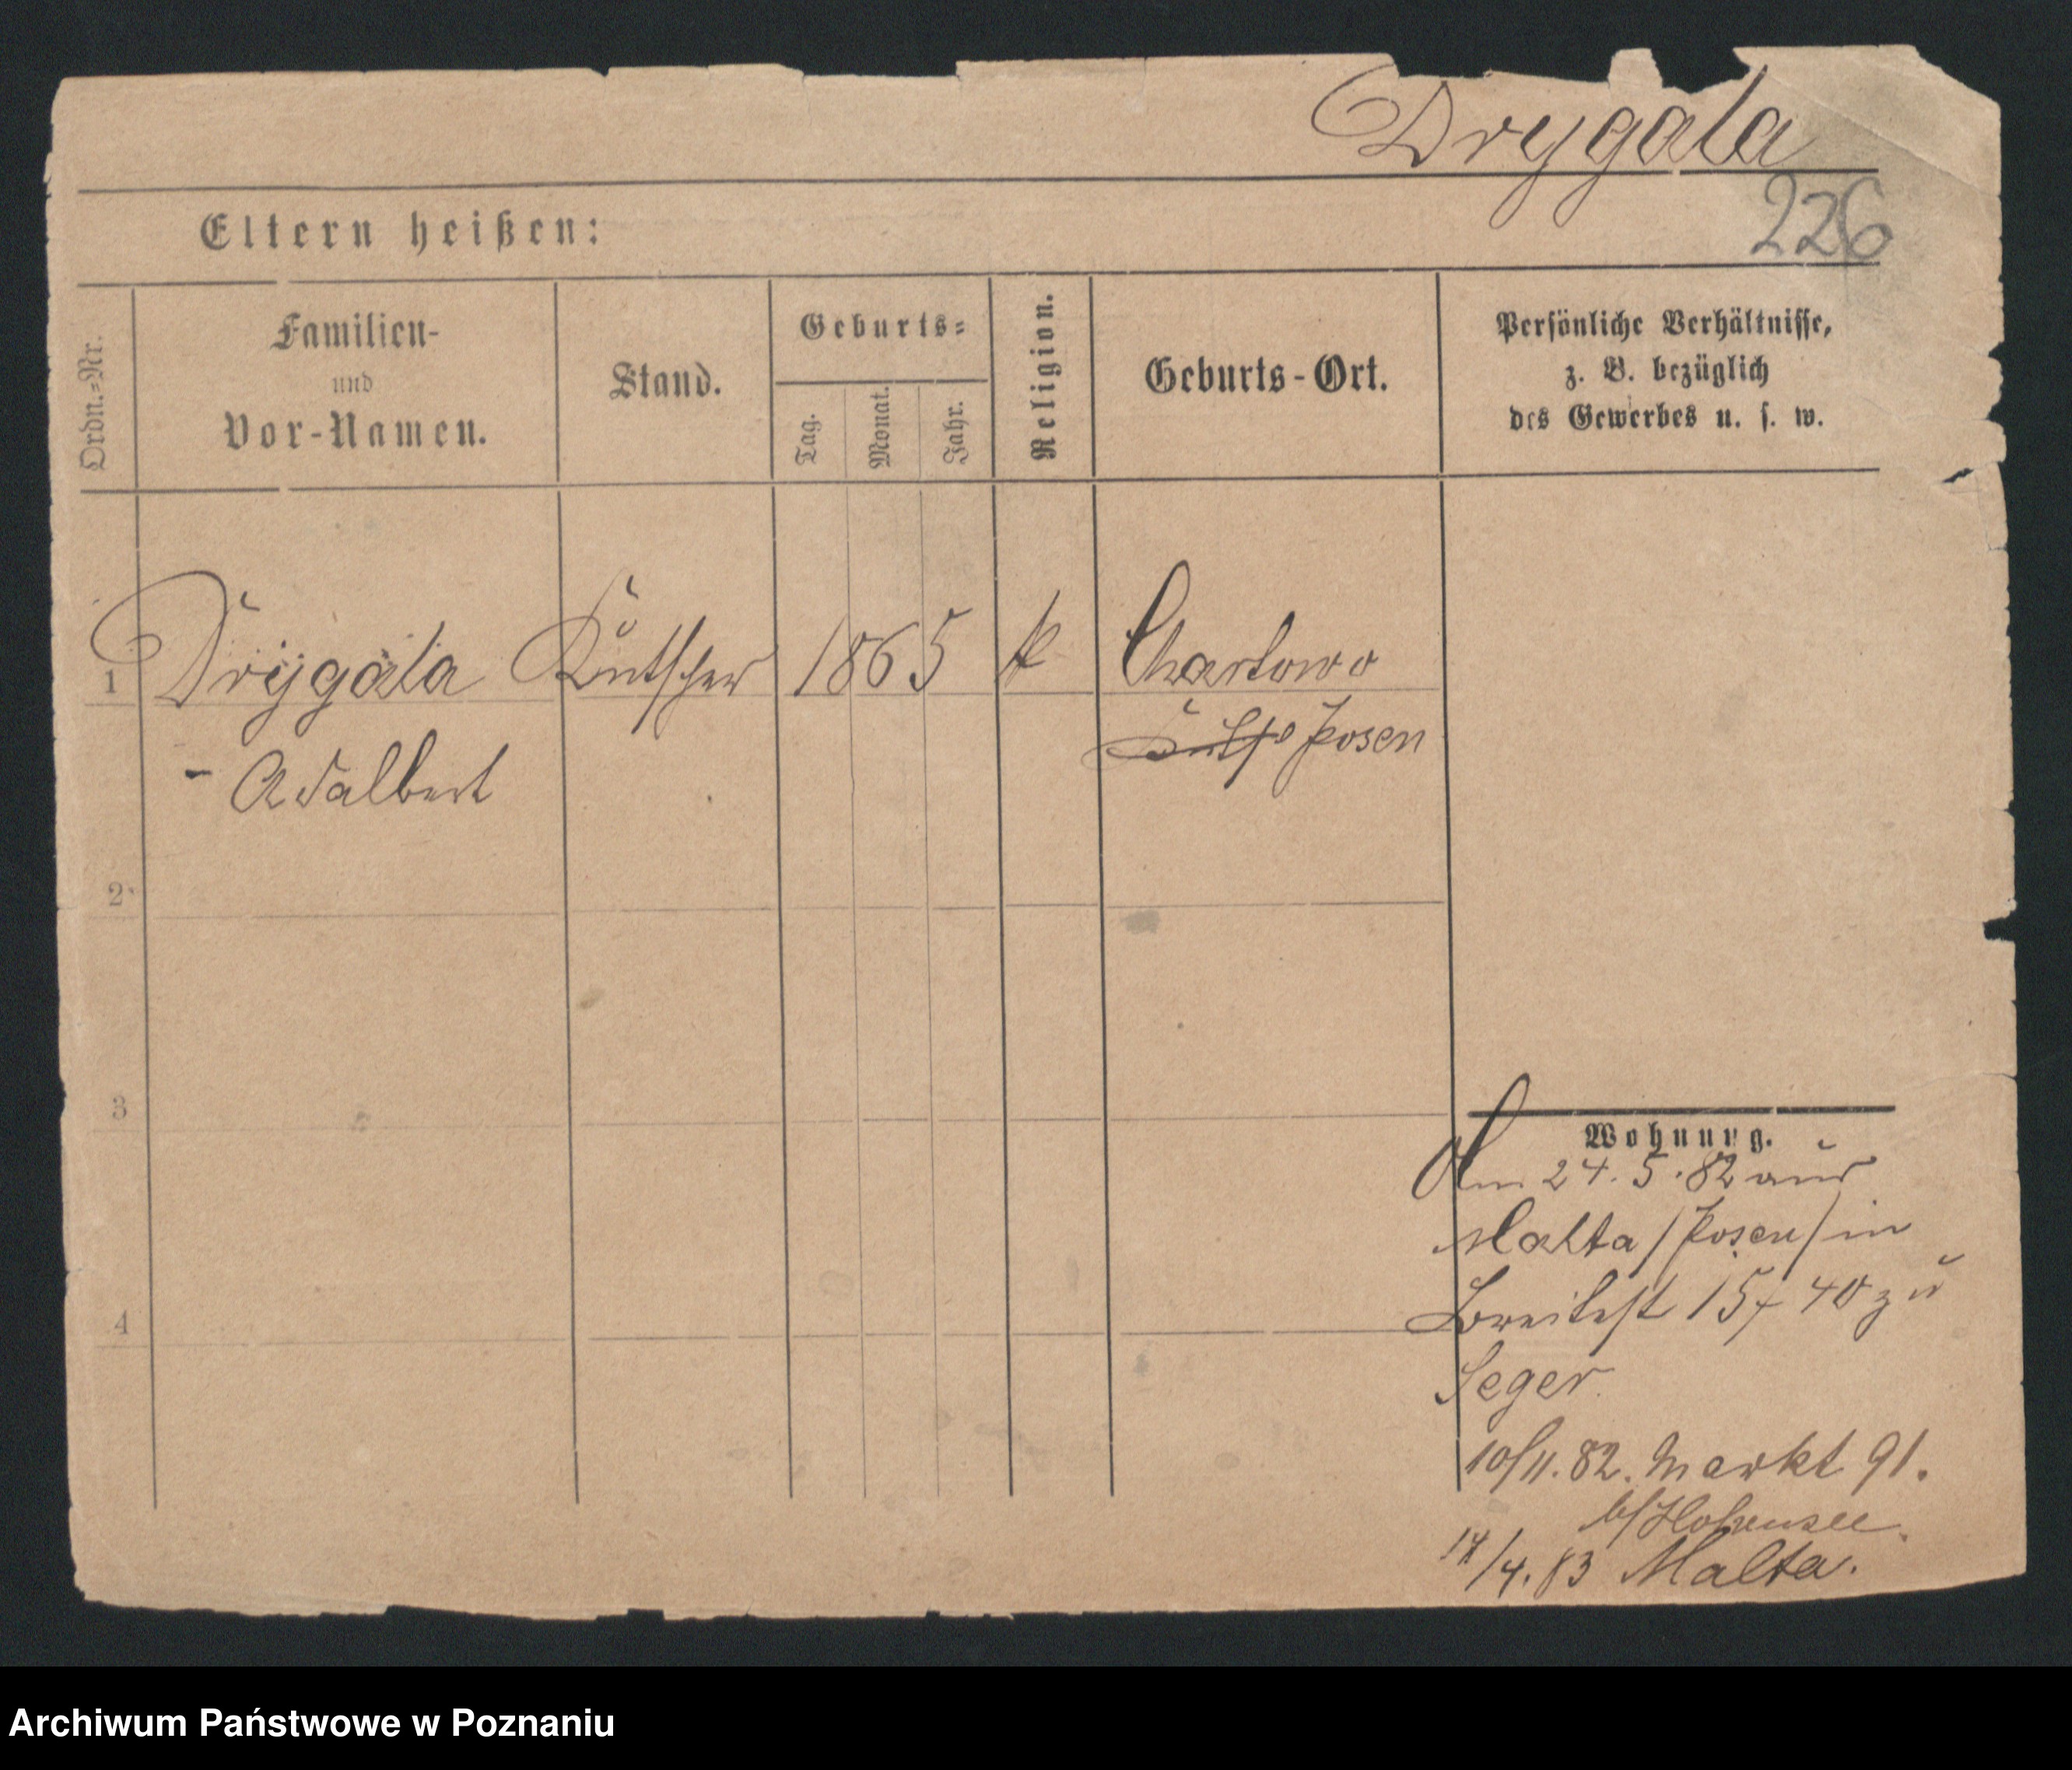 Drygala
226
Eltern heißen:
Ordn.-Nr.
Familien-
und
Vor-Namen.
Stand.
Geburts-
Tag.
Monat.
Jahr.
Religion.
Geburts-Ort.
Persönliche Verhältnisse,
z. B. bezüglich
des Gewerbes u. s. w.
1 Drygala Kutscher 1865 k Chartowo
Posen
- Adalbert
2
3
4
Wohnung.
Am 24.5.82 aus
Malta /Posen/ in
Breitest 15 40 zu
Seger
10/11.82. Markt 91.
b/Hohensee.
/4.83 Malta.
Archiwum Państwowe w Poznaniu